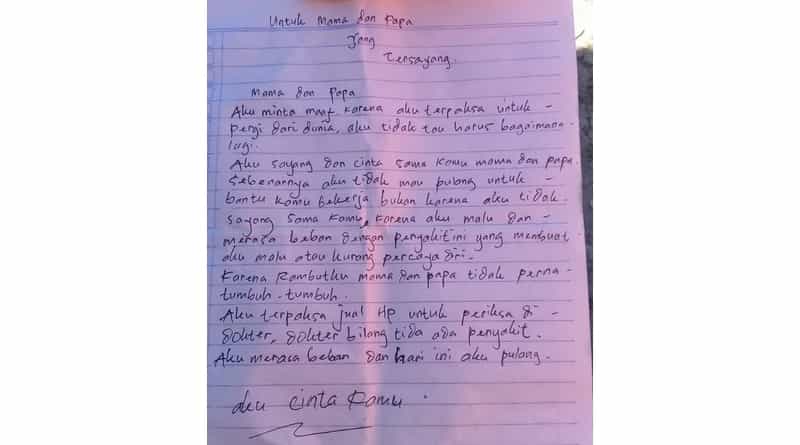 Untuk Mama dan Papa
Yang
Tersayang.
Mama dan Papa
Aku minta maaf karena aku terpaksa untuk -
pergi dari dunia, aku tidak tau harus bagaimana -
lagi.
Aku sayang dan cinta sama kamu mama dan papa.
Sebenarnya aku tidak mau pulang untuk -
bantu kamu bekerja bukan karena aku tidak.
sayang sama kamu, karena aku malu dan -
merasa beban dengan penyakit ini yang membuat.
aku malu atau kurang percaya diri.
Karena Rambutku mama dan papa tidak perna -
tumbuh-tumbuh.
Aku terpaksa jual Hp untuk periksa di -
dokter, dokter bilang tida ada penyakit.
Aku merasa beban dan hari ini aku pulang.
aku cinta kamu.